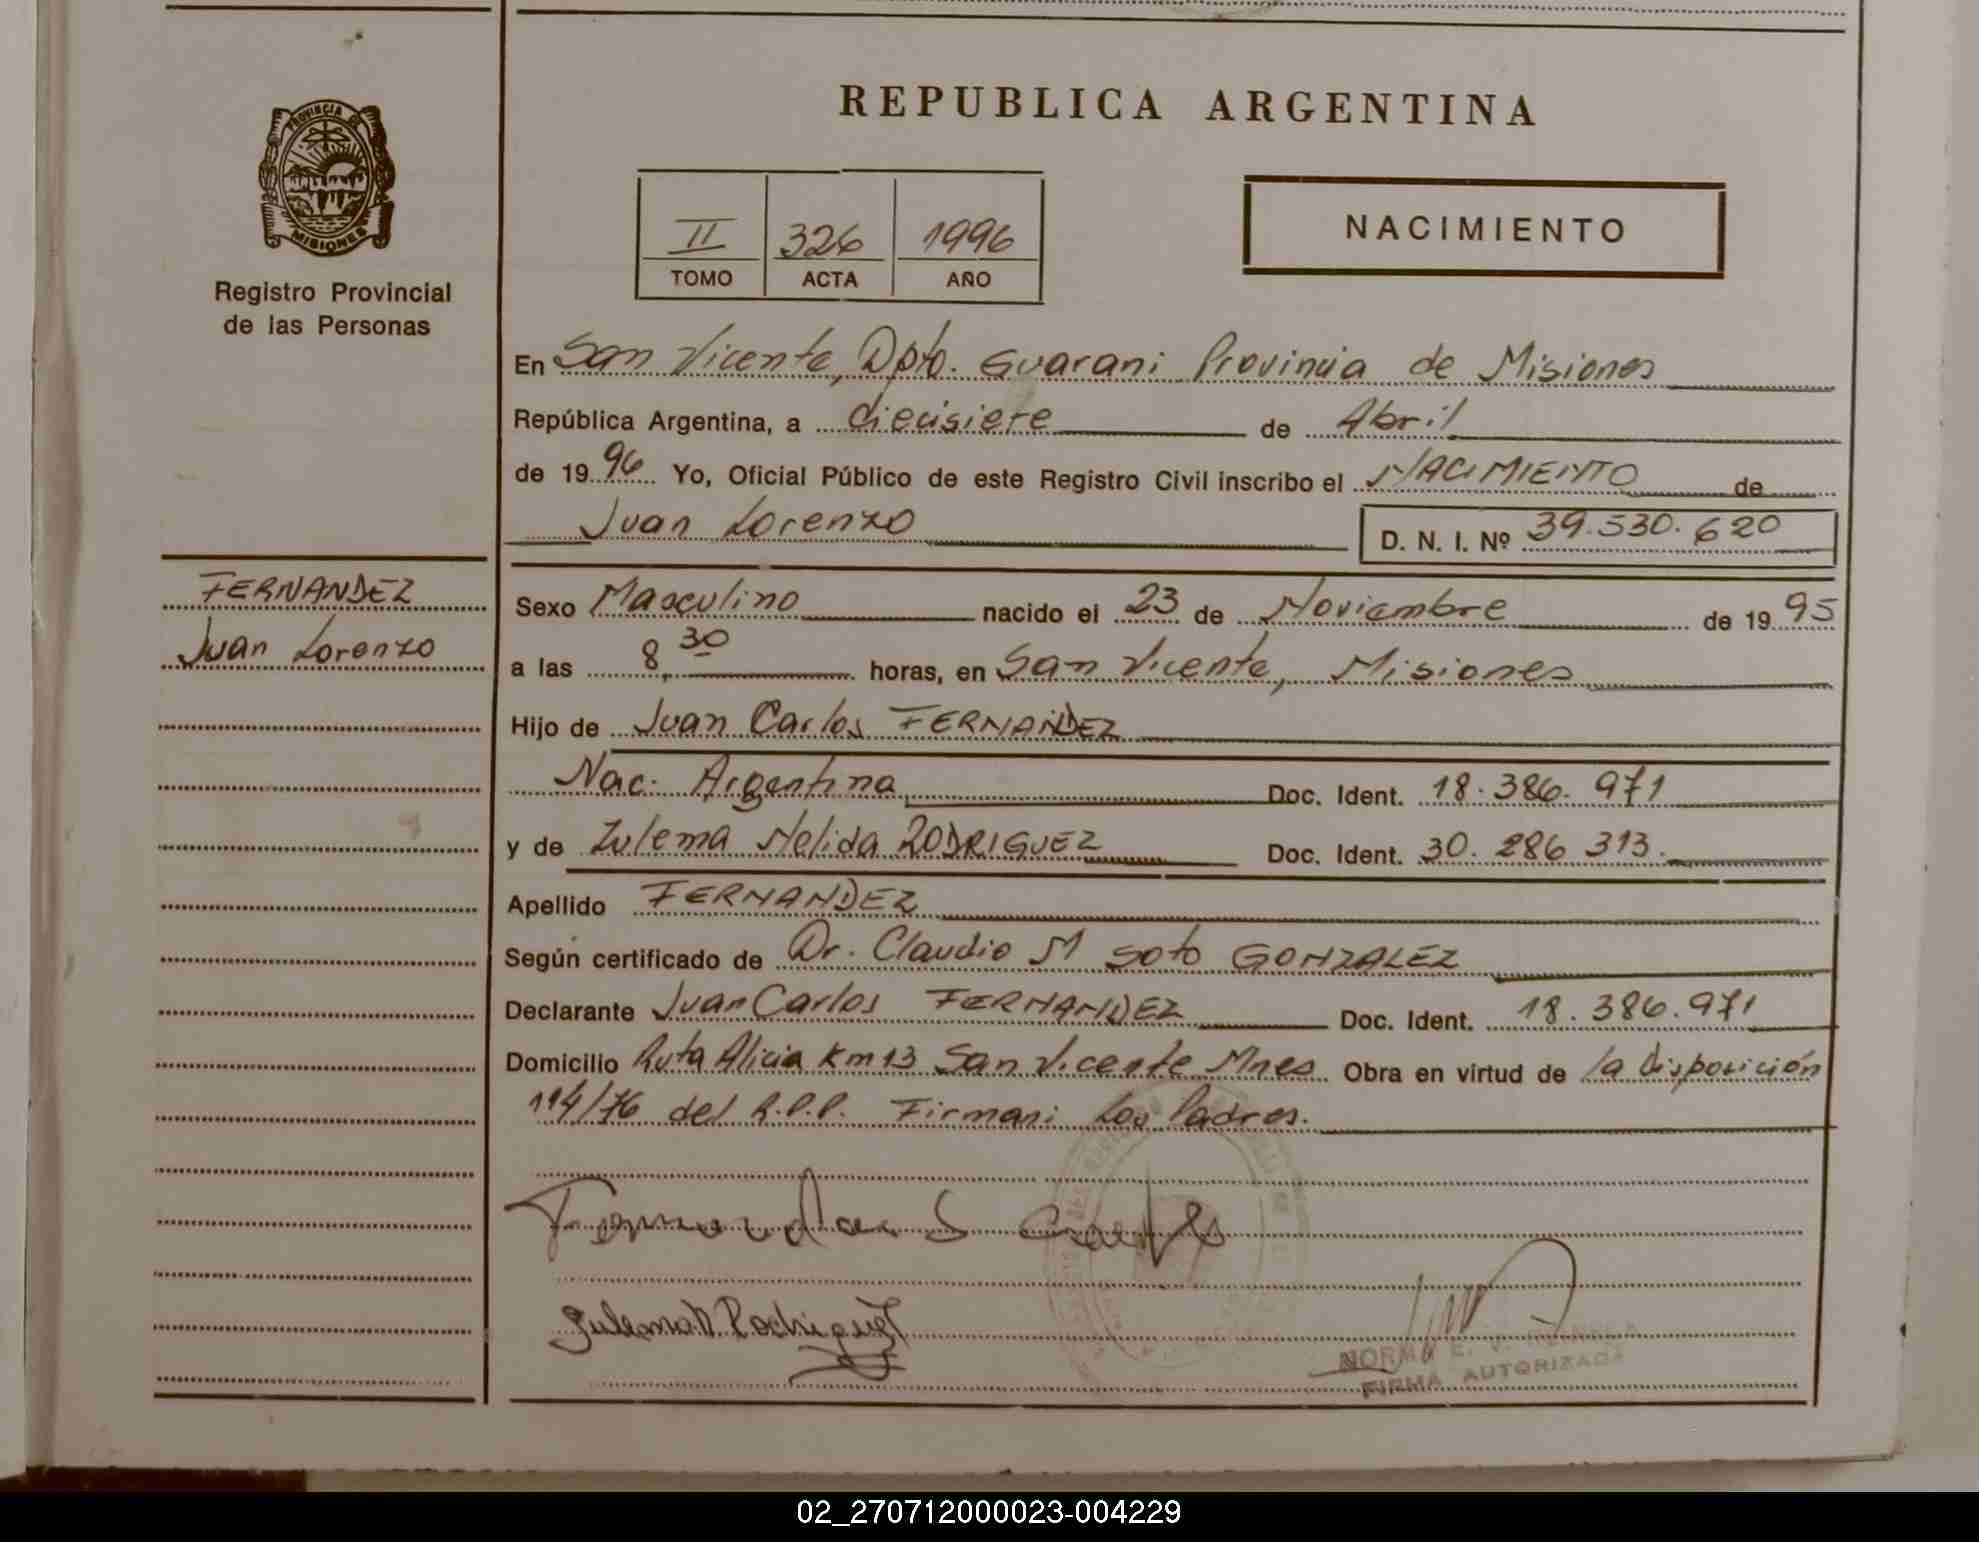 PROVINCIA DE
MISIONES
Registro Provincial
de las Personas
FERNANDEZ
Juan Lorenzo
REPUBLICA ARGENTINA
II 326 1996
TOMO ACTA AÑO
NACIMIENTO
En San Vicente, Dpto. Guarani Provincia de Misiones
República Argentina, a diecisiete de Abril
de 19 96 Yo, Oficial Público de este Registro Civil inscribo el NACIMIENTO de
Juan Lorenzo D. N. I. Nº 39.530.620
Sexo Masculino nacido el 23 de Noviembre de 19 95
a las 8,30 horas, en San Vicente, Misiones
Hijo de Juan Carlos FERNANDEZ
Nac. Argentina Doc. Ident. 18.386.971
y de Zulema Nelida RODRIGUEZ Doc. Ident. 30.286 313.
Apellido FERNANDEZ
Según certificado de Dr. Claudio M Soto GONZALEZ
Declarante Juan Carlos FERNANDEZ Doc. Ident. 18.386.971
Domicilio Ruta Alicia Km 13 San Vicente Mnes Obra en virtud de la disposición
194/76 del R.P.P. Firman: Los Padres.
Zulema N. Rodriguez
NORMA E. V.
FIRMA AUTORIZADA
02_270712000023-004229